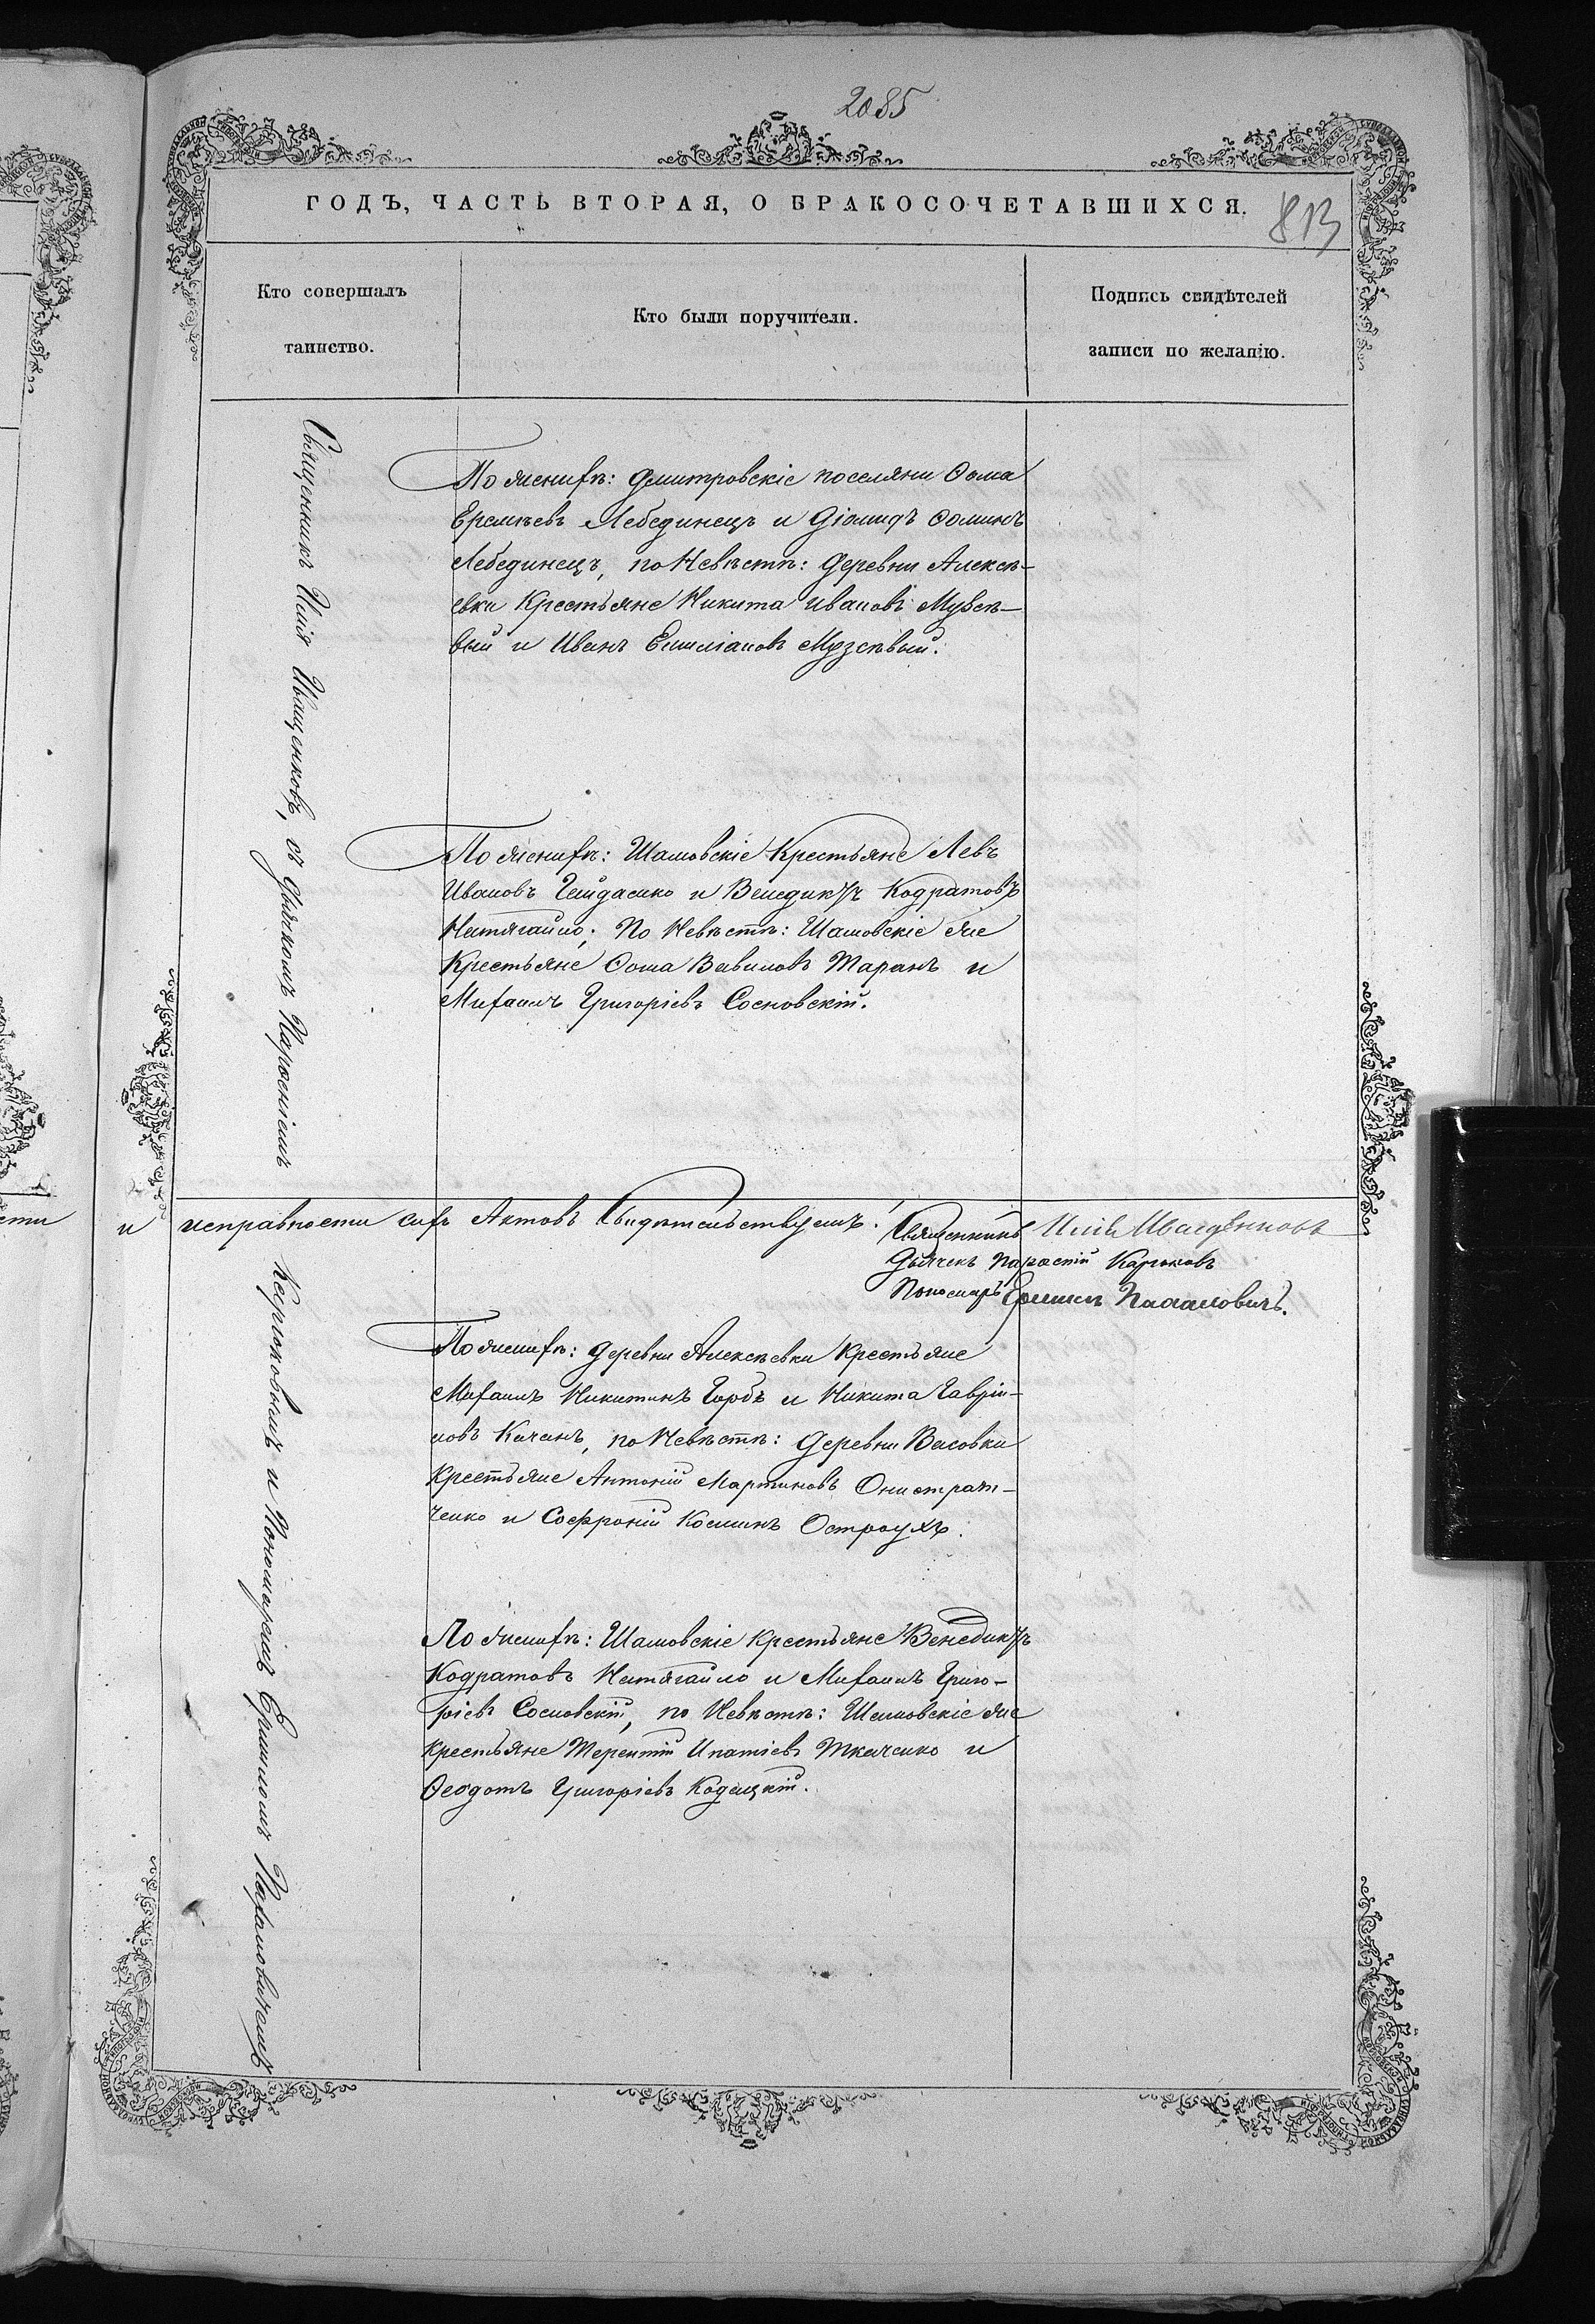 2085
ГОДЪ, ЧАСТЬ ВТОРАЯ, О БРАКОСОЧЕТАВШИХСЯ.
813
Кто совершалъ
таинство.
Кто были поручители.
Подпись свидѣтелей
записи по желанію.
Священникъ Илія Иващенковъ, съ дьячкомъ Парѳеніемъ
По женихѣ: Дмитровскіе поселяни Ѳома
Еремѣевъ Лебединецъ и Діомидъ Ѳоминъ
Лебединецъ, по Невѣстѣ: Деревни Алексѣ-
евки Крестьяне Никита Ивановъ Музсѣ-
вый и Иванъ Емиліановъ Музсѣвый.
По женихѣ: Шамовскіе Крестьяне Левъ
Ивановъ Гайдасико и Венедиктъ Кодратовъ
Натягайло; По Невѣстѣ: Шамовскіе же
Крестьяне Ѳома Вавиловъ Таранъ и
Михаилъ Григоріевъ Сосновскій.
и исправности сихъ Актовъ Свидѣтельствуемъ:
Священникъ Илія Иващенковъ
Дьячекъ Парѳеній Карюковъ
Пономарь Ермилъ Паѳаловичъ.
Карюковымъ и Пономаремъ Ермиломъ
По женихѣ: деревни Алексѣевки Крестьяне
Михаилъ Никитинъ Горбъ и Никита Гаврiи-
ловъ Качанъ, по Невѣстѣ: Деревни Васовки
Крестьяне Антоній Мартиновъ Онистрат-
ченко и Софроній Косминъ Остроухъ.
По женихѣ: Шамовскіе крестьяне Венедиктъ
Кодратовъ Натягайло и Михаилъ Григо-
ріевъ Сосновскій, по Невѣстѣ: Шамовскіе же
крестьяне Терентій Ипатіевъ Ткаченко и
Ѳеодотъ Григоріевъ Кодацкій.